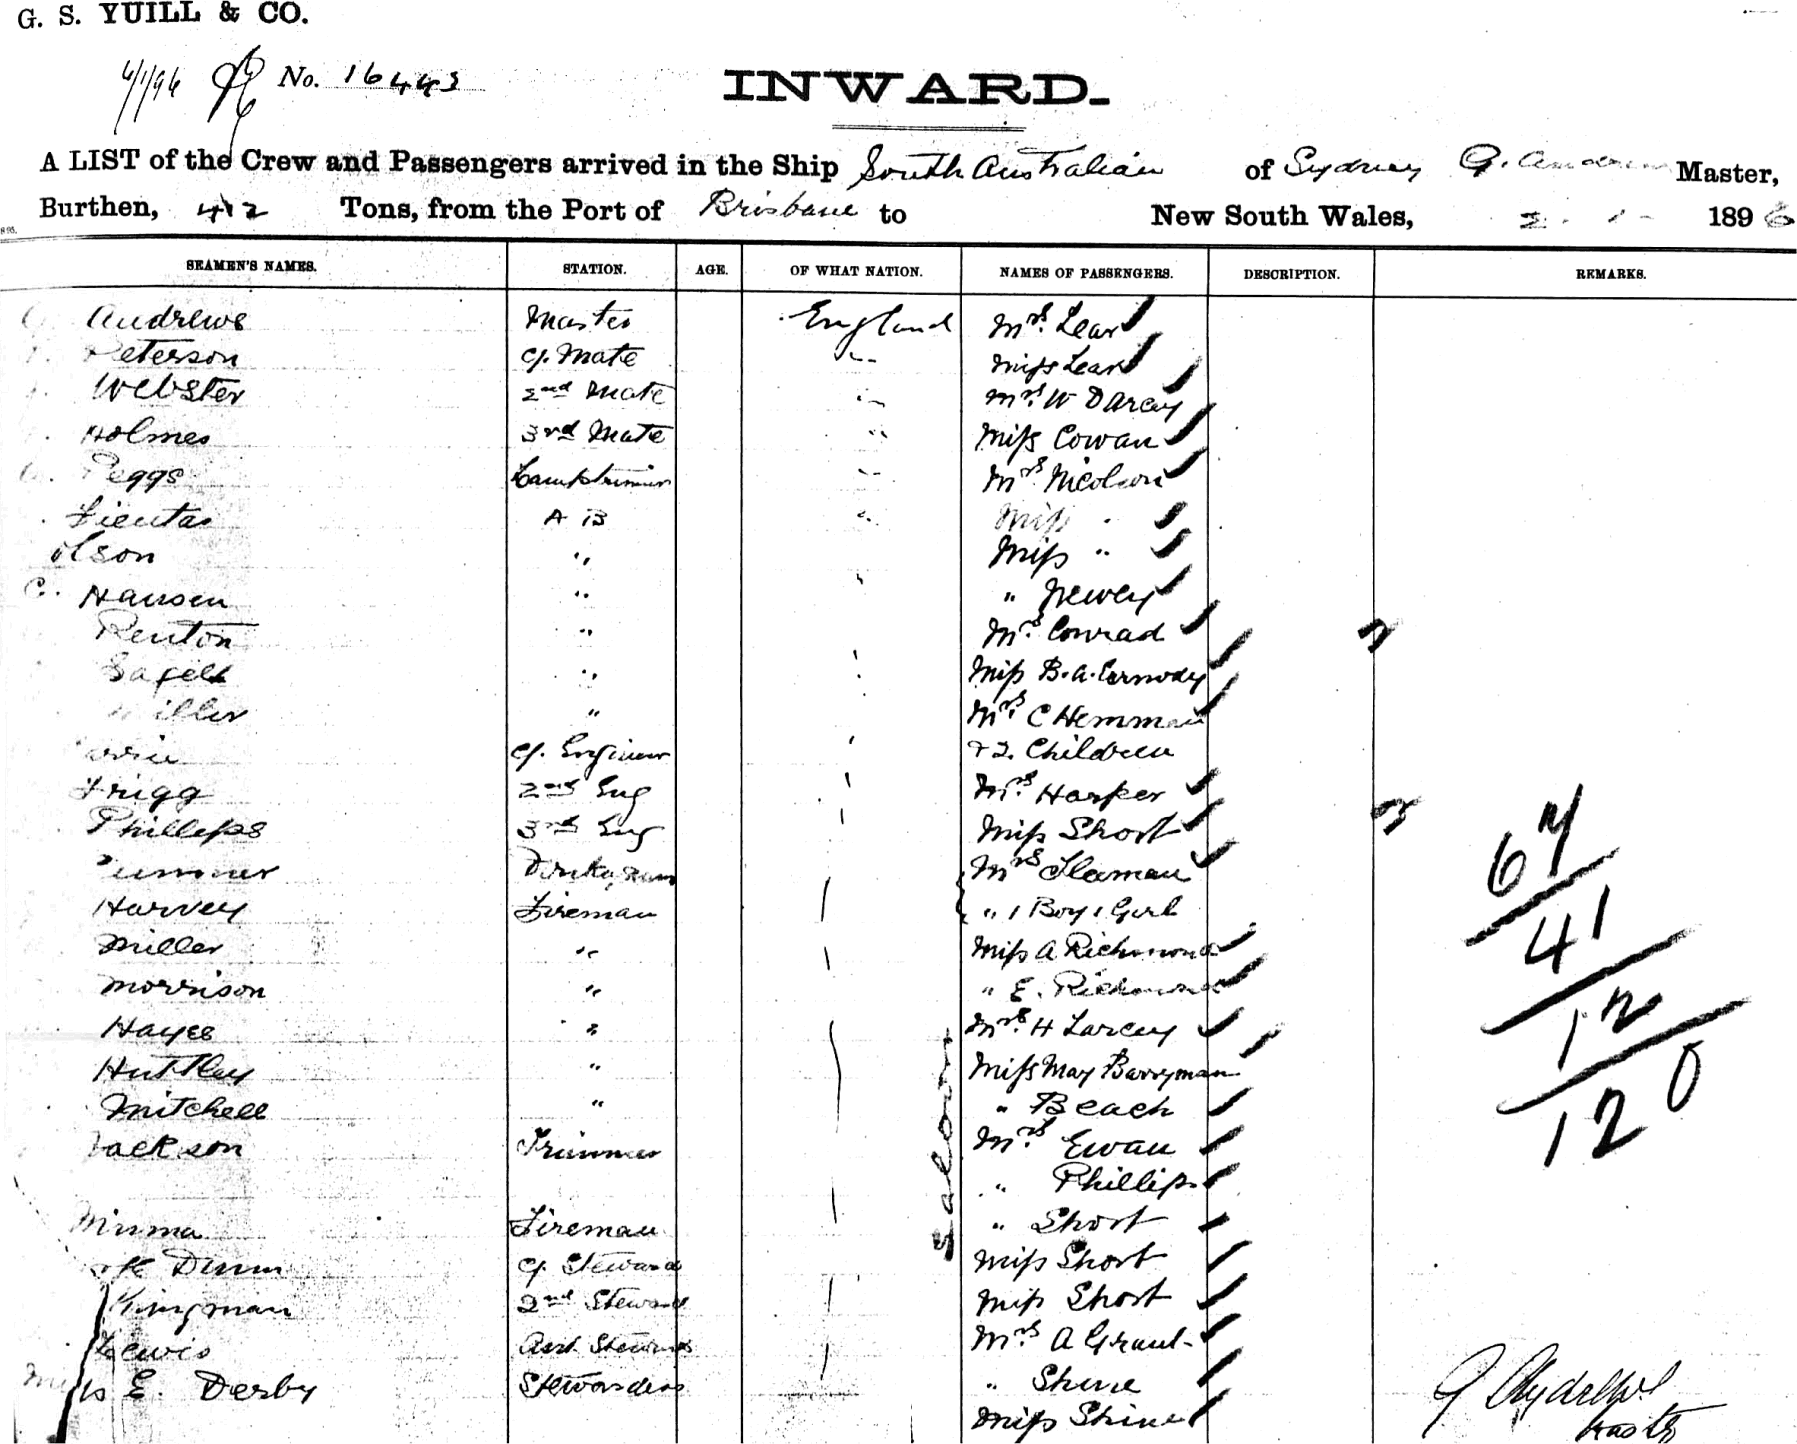 G. S. YUILL & CO.
6/1/96 No. 16443
INWARD.
A LIST of the Crew and Passengers arrived in the Ship South Australian of Sydney G. Andrews Master,
Burthen, 412 Tons, from the Port of Brisbane to New South Wales, 2 . 1 - 1896
SEAMEN'S NAMES. STATION. AGE. OF WHAT NATION. NAMES OF PASSENGERS. DESCRIPTION. REMARKS.
Andrews Master England Mrs. Lear
Peterson Cf. Mate " Miss Lear
Webster 2nd Mate " Mrs W Darcey
Holmes 3rd Mate " Miss Cowan
Peggs Lamptrimmer " Mrs Nicolson
A B " Miss "
Olson " Miss "
C. Hansen " " Newey
Renton " Mrs. Conrad 2
" Miss B. A. Cermody
Miller " Mrs. C Hemman
Cf. Engineer + 2. Children
Trigg 2nd Eng Mrs. Harper
Phillips 3rd Eng Miss Short 3
Mrs Flaman
Harvey Fireman " 1 Boy 1 Girl
Miller " Miss A Richmond
Morrison " " E. Richmond
Hayes " Mrs. H Larcey
Huttley " Miss May Barryman
Mitchell " " Beach
Jackson Trimmer Mrs. Ewan
" Phillips
Fireman " Short
Dunn Cf Steward Miss Short
Kingman 2nd Steward Miss Short
Lewis Asst Steward Mrs A Grant
Miss E. Derby Stewardess " Shine
Miss Shine
Saloon
67
41
12
120
G Andrews
Master